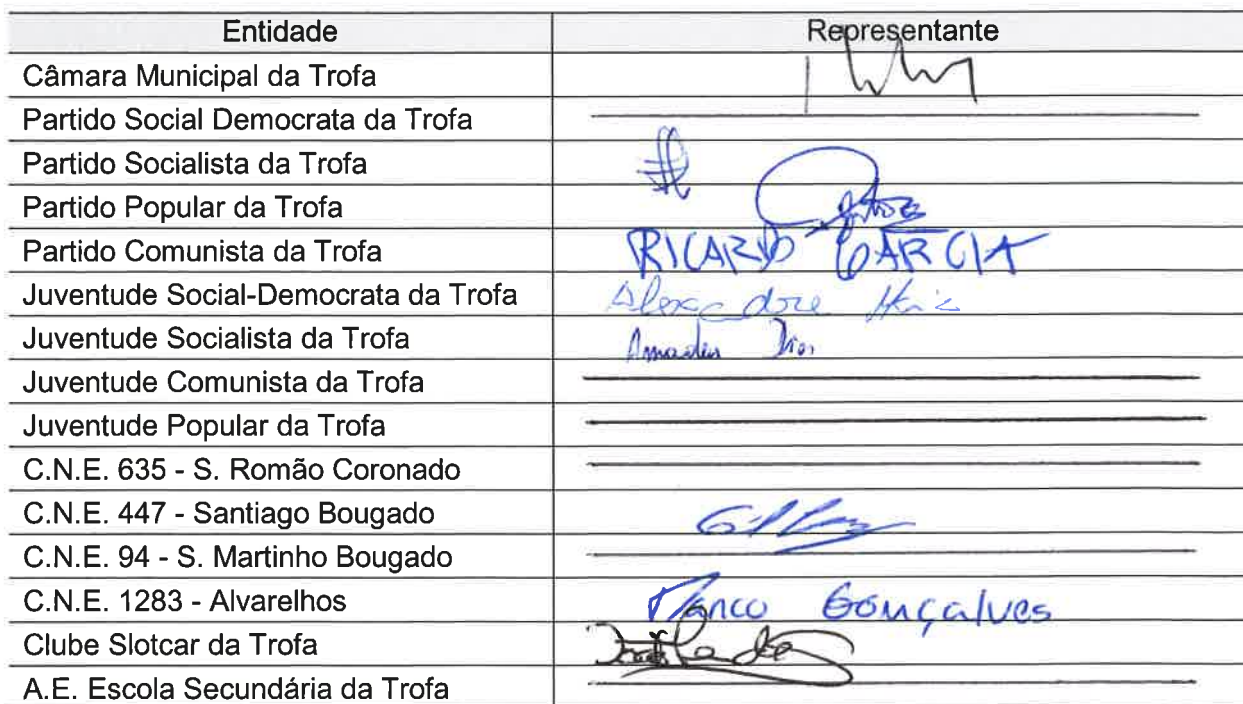 Entidade Representante
Câmara Municipal da Trofa
Partido Social Democrata da Trofa
Partido Socialista da Trofa
Partido Popular da Trofa
Partido Comunista da Trofa RICARDO GARCIA
Juventude Social-Democrata da Trofa
Juventude Socialista da Trofa
Juventude Comunista da Trofa
Juventude Popular da Trofa
C.N.E. 635 - S. Romão Coronado
C.N.E. 447 - Santiago Bougado
C.N.E. 94 - S. Martinho Bougado
C.N.E. 1283 - Alvarelhos Marco Gonçalves
Clube Slotcar da Trofa
A.E. Escola Secundária da Trofa